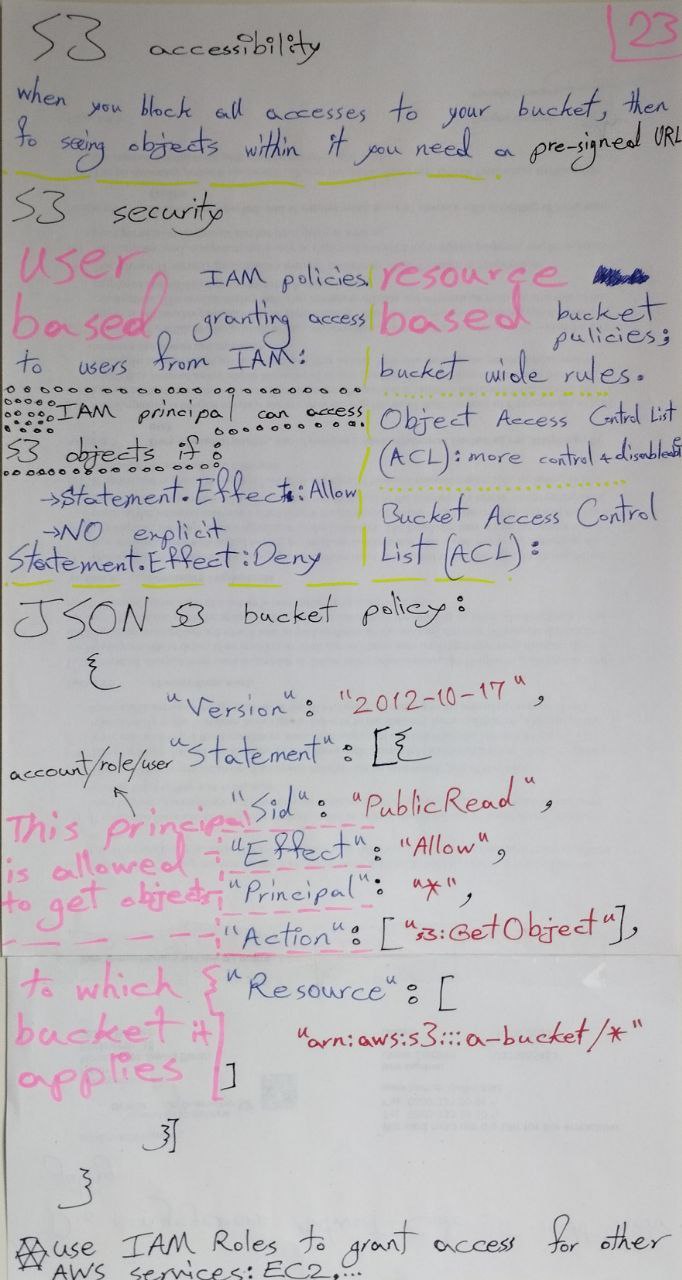 S3 accessibility
23
when you block all accesses to your bucket, then
to seeing objects within it you need a pre-signed URL
S3 security
user
based
IAM policies
granting access
to users from IAM:
IAM principal can access
S3 objects if:
→Statement.Effect:Allow
→NO explicit
Statement.Effect:Deny
resource
based bucket
pulicies;
bucket wide rules.
Object Access Control List
(ACL): more control + disableable
Bucket Access Control
List (ACL):
JSON S3 bucket policy:
{
"Version": "2012-10-17",
"Statement": [{
account/role/user
"Sid": "PublicRead",
This principal
is allowed
to get objects
"Effect": "Allow",
"Principal": "*",
"Action": ["s3:GetObject"],
to which
bucket it
applies
"Resource": [
"arn:aws:s3:::a-bucket/*"
]
}]
}
use IAM Roles to grant access for other
AWS services: EC2,...